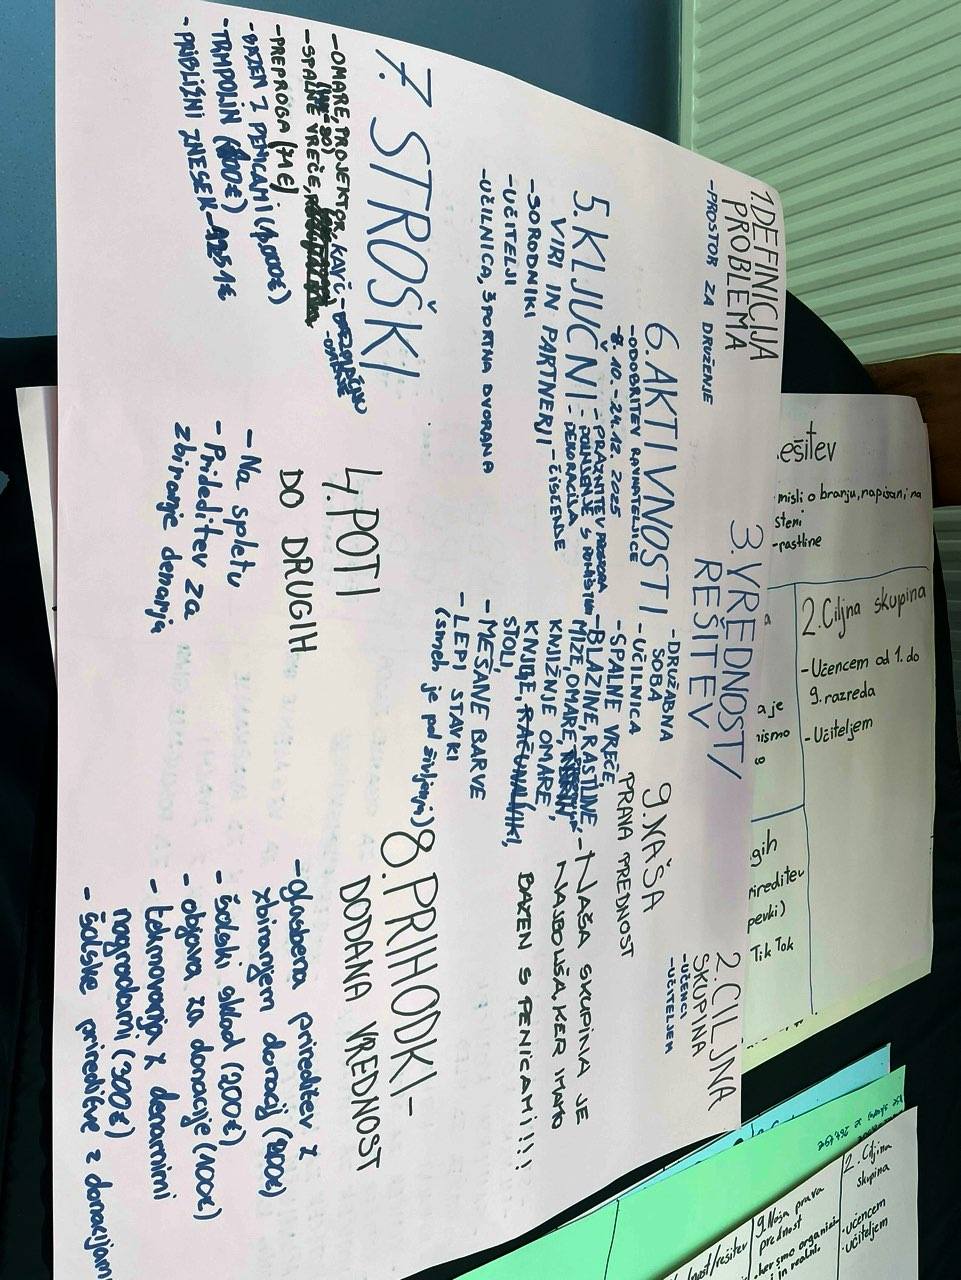 1. DEFINICIJA
PROBLEMA
-PROSTOR ZA DRUŽENJE
3. VREDNOST/
REŠITEV
-DRUŽABNA
SOBA
-UČILNICA
-SPALNE VREČE,
-BLAZINE, RASTLINE,
MIZE, OMARE
KNJIŽNE OMARE,
KNJIGE, RAČUNALNIKI,
STOLI,
-MEŠANE BARVE
-LEPI STAVKI
(smeh je pol življenja)
2. CILJNA
SKUPINA
-UČENCI
-UČITELJEM
6. AKTIVNOSTI
-ODOBRITEV RAVNATELJICE
-8.10.-24.12. 2025
-PRAZNITEV PROSTORA
-DEKORACIJA
-ČIŠČENJE
9. NAŠA
PRAVA PREDNOST
-NAŠA SKUPINA JE
NAJBOLJŠA, KER IMAMO
BAZEN S PENICAMI!!!
5. KLJUČNI
VIRI IN PARTNERJI
-SORODNIKI
-UČITELJI
-UČILNICA, ŠPORTNA DVORANA
7. STROŠKI
-OMARE, PROJEKTOR, KAVČ-
-SPALNE VREČE,
-PREPROGA (71€)
-BAZEN Z PENICAMI
-TRAMPOLIN
-PRIBLIŽNI ZNESEK-
4. POTI
DO DRUGIH
-Na spletu
-Prideditev za
zbiranje denarja
8. PRIHODKI-
DODANA VREDNOST
-glasbena prireditev z
zbiranjem doracij
-šolski sklad (200€)
-objava za donacije (100€)
-tekmovanja z denarnimi
nagradami (300€)
-šolske prireditve z donacijami
ešitev
misli o branju, napisani na
steni
-rastline
2. Ciljna skupina
-Učencem od 1. do
9. razreda
-Učiteljem
a je
gih
rireditev
pevki)
Tik Tok
2. Ciljna
skupina
-učencem
-učiteljem
9. Naša prava
prednost
-ker smo organizi
in realni.
nost/rešitev